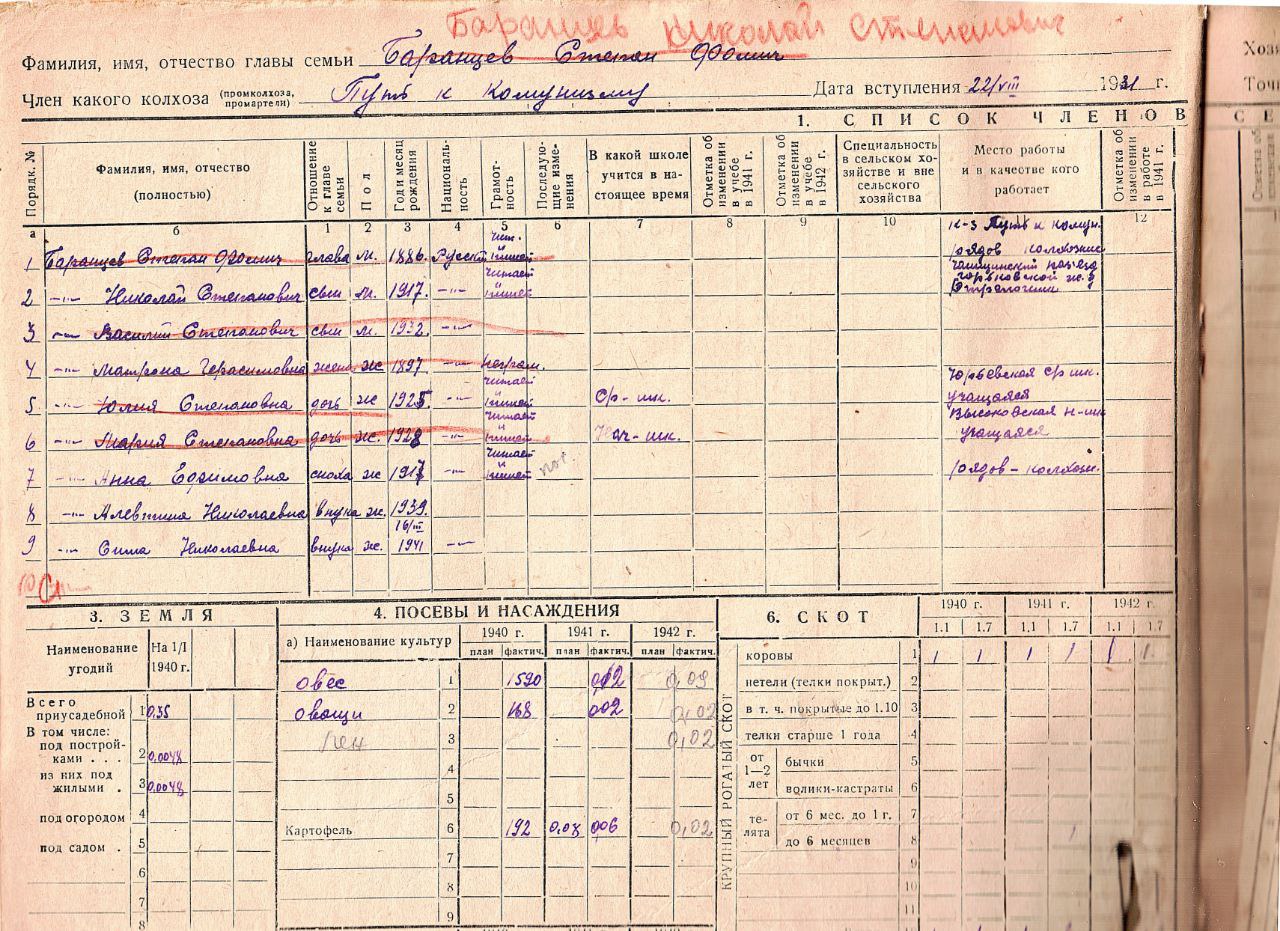 Баранцев Николай Степанович
Фамилия, имя, отчество главы семьи Баранцев Степан Фомич
Член какого колхоза (промколхоза, промартели) Путь к комунизму Дата вступления 22/VIII 1931 г.
1. СПИСОК ЧЛЕНОВ
Порядк. № Фамилия, имя, отчество (полностью) Отношение к главе семьи Пол Год и месяц рождения Националь-ность Грамот-ность Последую-щие изме-нения В какой школе учится в на-стоящее время Отметка об изменении в учебе в 1941 г. Отметка об изменении в учебе в 1942 г. Специальность в сельском хо-зяйстве и вне сельского хозяйства Место работы и в качестве кого работает Отметка об изменении в работе в 1941 г.
а б 1 2 3 4 5 6 7 8 9 10 12
1 Баранцев Степан Фомич глава м. 1886. Русск чит. и пишет к-з Путь к комун. рядов колхозник
2 -"- Николай Степанович сын м. 1917. -"- читает и пишет
3 -"- Василий Степанович сын м. 1932. -"-
4 -"- Матрона Герасимовна жена ж 1897 -"- неграм.
5 -"- Юлия Степановна дочь ж 1925. -"- читает и пишет ср-шк. Юрьевская ср шк. учащаяся
6 -"- Мария Степановна дочь ж. 1928 -"- читает и пишет нач-шк. Высоковская н-шк учащаяся
7 -"- Анна Ефимовна сноха ж 1917 -"- читает и пишет рядов-колхозн.
8 -"- Алевтина Николаевна внучка ж. 1939.
9 -"- Сима Николаевна внучка ж. 16/III 1941 -"-
3. ЗЕМЛЯ
Наименование угодий На 1/I 1940 г.
Всего приусадебной 1 0.35
В том числе:
под построй-ками . . . 2 0.0048
из них под жилыми . 3 0.0048
под огородом 4
под садом . 5
6
7
8
4. ПОСЕВЫ И НАСАЖДЕНИЯ
а) Наименование культур 1940 г. 1941 г. 1942 г.
план фактич. план фактич. план фактич.
овес 1 1590 0,12 0,09
овощи 2 168 002 0,02
лен 3 0,02
4
5
Картофель 6 192 0.08 006 0,02
7
8
9
6. СКОТ
1940 г. 1941 г. 1942 г.
1.1 1.7 1.1 1.7 1.1 1.7
КРУПНЫЙ РОГАТЫЙ СКОТ
коровы 1 1 1 1 1 1 1
нетели (телки покрыт.) 2
в т. ч. покрытые до 1.10 3
телки старше 1 года 4
от 1—2 лет бычки 5
волики-кастраты 6
те-лята от 6 мес. до 1 г. 7
до 6 месяцев 8 1
9
10
11
Хозя
Точн
СЕ